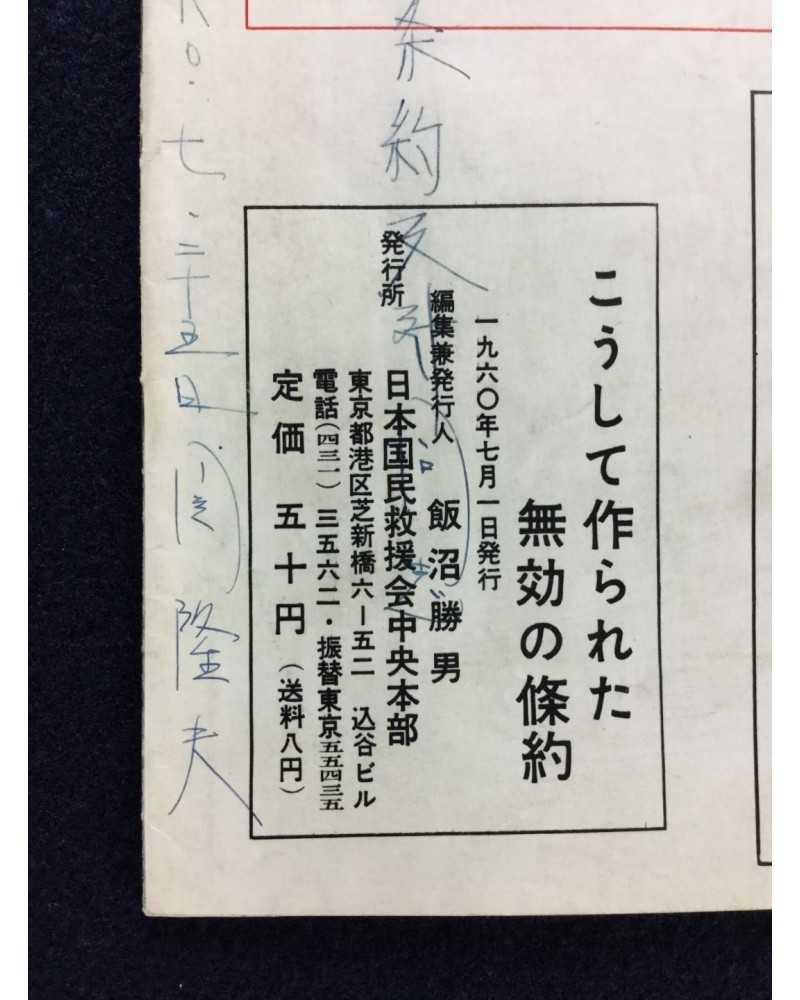 こうして作られた
無効の條約
一九六〇年七月一日発行
編集兼発行人 飯沼勝男
発行所 日本国民救援会中央本部
東京都港区芝新橋六ー五二 込谷ビル
電話(四三一)三五六二・振替東京五五四三五
定価 五十円(送料八円)
条約反対
〇.七.二十五日
隆夫